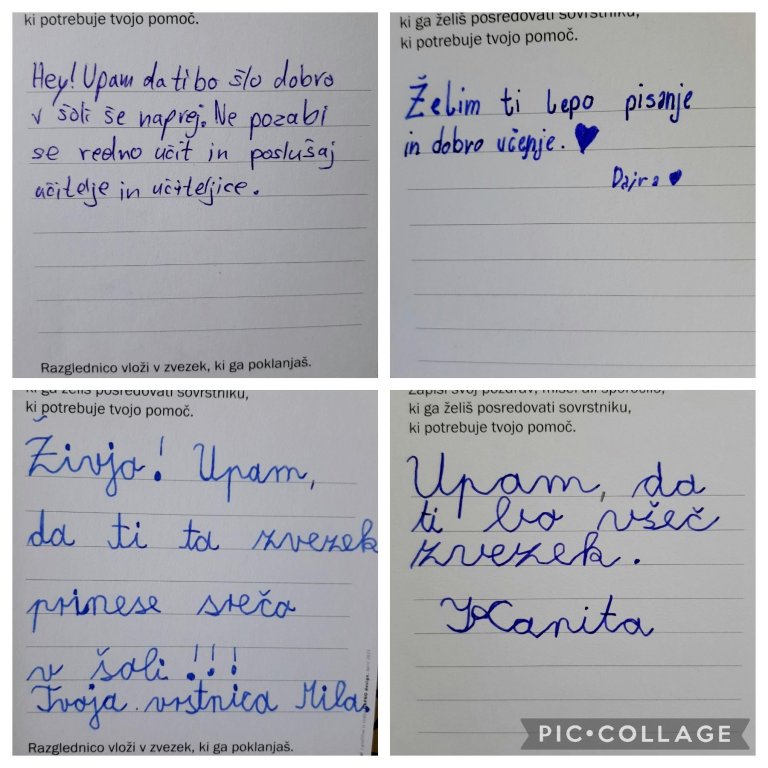 ki potrebuje tvojo pomoč.
Hey! Upam da ti bo šlo dobro
v šoli še naprej. Ne pozabi
se redno učit in poslušaj
učitelje in učiteljice.
Razglednico vloži v zvezek, ki ga poklanjaš.
ki ga želiš posredovati sovrstniku,
ki potrebuje tvojo pomoč.
Želim ti lepo pisanje
in dobro učenje.
Dajra
ki ga želiš posredovati sovrstniku,
ki potrebuje tvojo pomoč.
Živjo! Upam,
da ti ta zvezek
prinese srečo
v šoli!!!
Tvoja vrstnica Mila.
Razglednico vloži v zvezek, ki ga poklanjaš.
Zapiši svoj pozdrav, misel ali sporočilo,
ki ga želiš posredovati sovrstniku,
ki potrebuje tvojo pomoč.
Upam, da
ti bo všeč
zvezek.
Kanita
PIC•COLLAGE